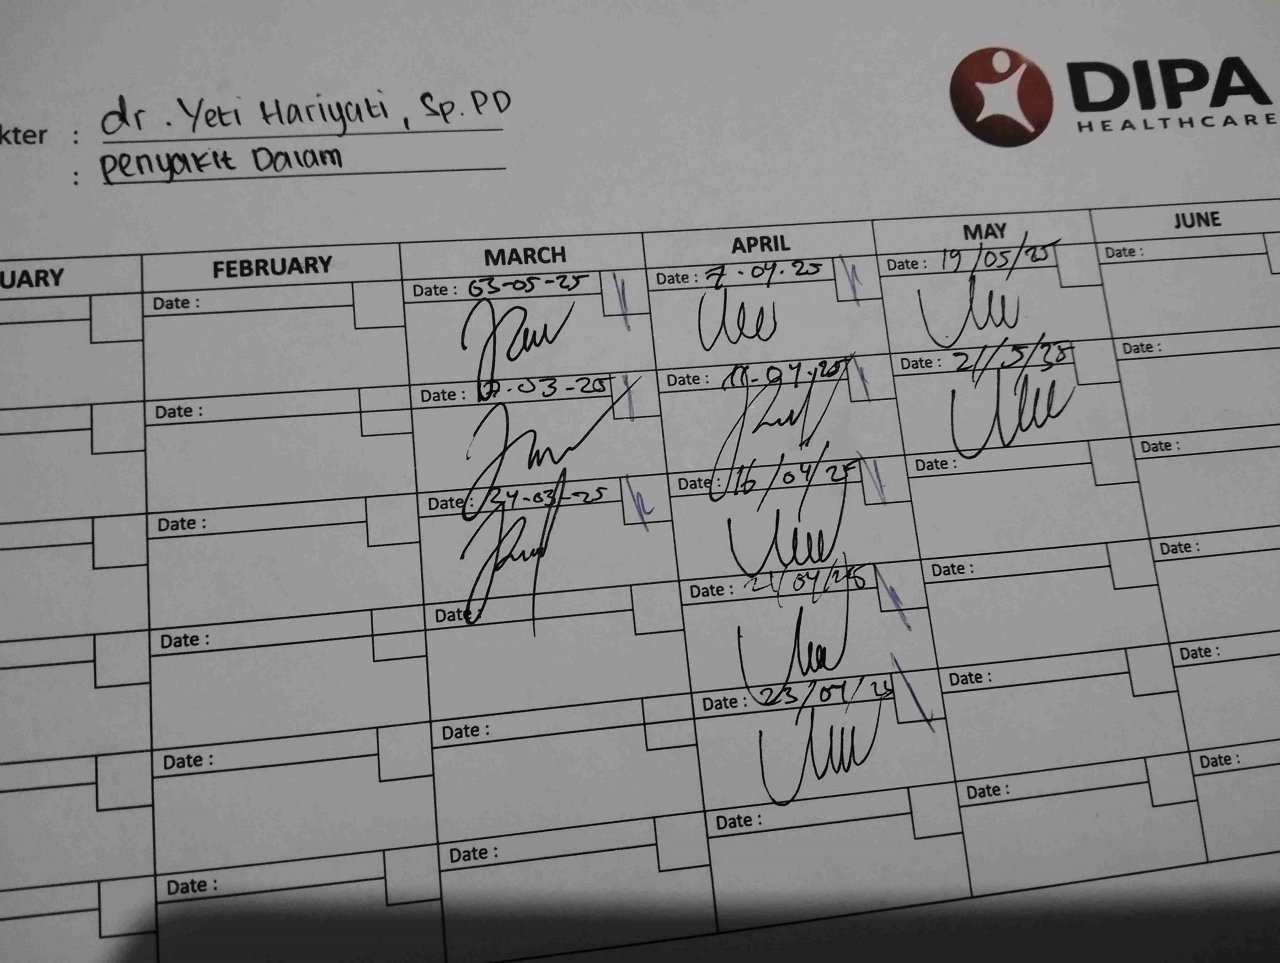 DIPA
HEALTHCARE
kter : dr. Yeti Hariyati, Sp.PD
: Penyakit Dalam
UARY FEBRUARY MARCH APRIL MAY JUNE
Date : Date : 03-05-25 Date : 7.04.25 Date : 19/05/25 Date :
Date : Date : -03-25 Date : 11-04-25 Date : 21/5/25 Date :
Date : Date : 24-03-25 Date : 16/04/25 Date : Date :
Date : Date : Date : 21/04/25 Date : Date :
Date : Date : Date : 23/04/25 Date : Date :
Date : Date : Date : Date : Date :